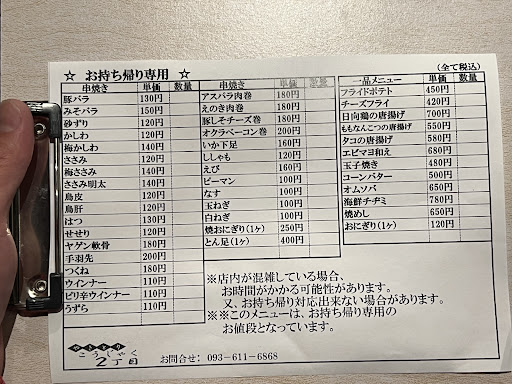 ☆ お持ち帰り専用 ☆
(全て税込)
串焼き 単価 数量
豚バラ 130円
みそバラ 150円
砂ずり 120円
かしわ 120円
梅かしわ 140円
ささみ 120円
梅ささみ 140円
ささみ明太 140円
鳥皮 120円
鳥肝 120円
はつ 130円
せせり 120円
ヤゲン軟骨 180円
手羽先 200円
つくね 180円
ウインナー 110円
ピリ辛ウインナー 110円
うずら 110円
串焼き 単価 数量
アスパラ肉巻 180円
えのき肉巻 180円
豚しそチーズ巻 180円
オクラベーコン巻 200円
いか下足 160円
ししゃも 120円
えび 160円
ピーマン 100円
なす 100円
玉ねぎ 100円
白ねぎ 100円
焼おにぎり(1ヶ) 250円
とん足(1ヶ) 400円
一品メニュー 単価 数量
フライドポテト 450円
チーズフライ 420円
日向鶏の唐揚げ 700円
ももなんこつの唐揚げ 550円
タコの唐揚げ 580円
エビマヨ和え 680円
玉子焼き 480円
コーンバター 500円
オムソバ 650円
海鮮チヂミ 780円
焼めし 650円
おにぎり(1ヶ) 120円
※店内が混雑している場合、
お時間がかかる可能性があります。
又、お持ち帰り対応出来ない場合があります。
※※このメニューは、お持ち帰り専用の
お値段となっています。
やきとり
こうじゃく
2丁目
お問合せ: 093-611-6868